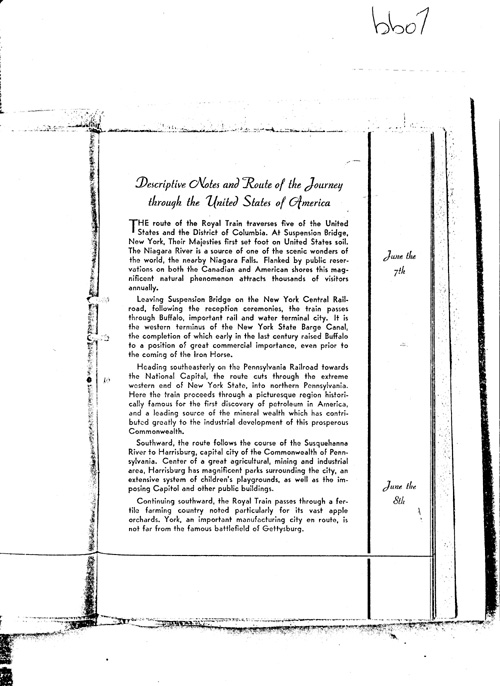 bb07
Descriptive Notes and Route of the Journey
through the United States of America
THE route of the Royal Train traverses five of the United
States and the District of Columbia. At Suspension Bridge,
New York, Their Majesties first set foot on United States soil.
The Niagara River is a source of one of the scenic wonders of
the world, the nearby Niagara Falls. Flanked by public reser-
vations on both the Canadian and American shores this mag-
nificent natural phenomenon attracts thousands of visitors
annually.
June the
7th
Leaving Suspension Bridge on the New York Central Rail-
road, following the reception ceremonies, the train passes
through Buffalo, important rail and water terminal city. It is
the western terminus of the New York State Barge Canal,
the completion of which early in the last century raised Buffalo
to a position of great commercial importance, even prior to
the coming of the Iron Horse.
Heading southeasterly on the Pennsylvania Railroad towards
the National Capital, the route cuts through the extreme
western end of New York State, into northern Pennsylvania.
Here the train proceeds through a picturesque region histori-
cally famous for the first discovery of petroleum in America,
and a leading source of the mineral wealth which has contri-
buted greatly to the industrial development of this prosperous
Commonwealth.
Southward, the route follows the course of the Susquehanna
River to Harrisburg, capital city of the Commonwealth of Penn-
sylvania. Center of a great agricultural, mining and industrial
area, Harrisburg has magnificent parks surrounding the city, an
extensive system of children's playgrounds, as well as the im-
posing Capitol and other public buildings.
June the
8th
Continuing southward, the Royal Train passes through a fer-
tile farming country noted particularly for its vast apple
orchards. York, an important manufacturing city en route, is
not far from the famous battlefield of Gettysburg.